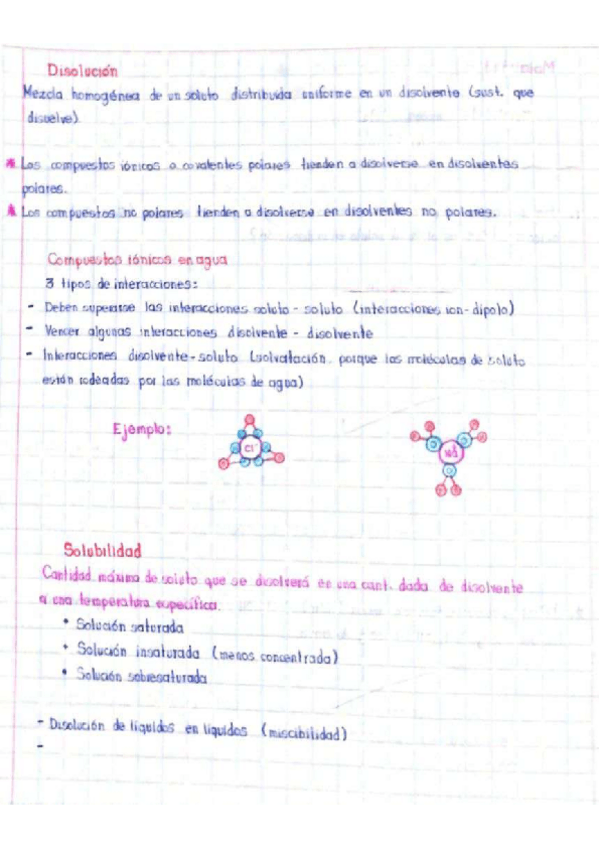 Disolución
Mezcla homogénea de un soluto distribuida uniforme en un disolvente (sust. que
disuelve).
Los compuestos iónicos o covalentes polares tienden a disolverse en disolventes
polares.
Los compuestos no polares tienden a disolverse en disolventes no polares.
Compuestos iónicos en agua
3 tipos de interacciones:
- Deben superarse las interacciones soluto - soluto (interacciones ion-dipolo)
- Vencer algunas interacciones disolvente - disolvente
- Interacciones disolvente-soluto (solvatación, porque las moléculas de soluto
están rodeadas por las moléculas de agua)
Ejemplo:
Cl⁻
Na⁺
Solubilidad
Cantidad máxima de soluto que se disolverá en una cant. dada de disolvente
a una temperatura específica.
• Solución saturada
• Solución insaturada (menos concentrada)
• Solución sobresaturada
- Disolución de líquidos en líquidos (miscibilidad)
-